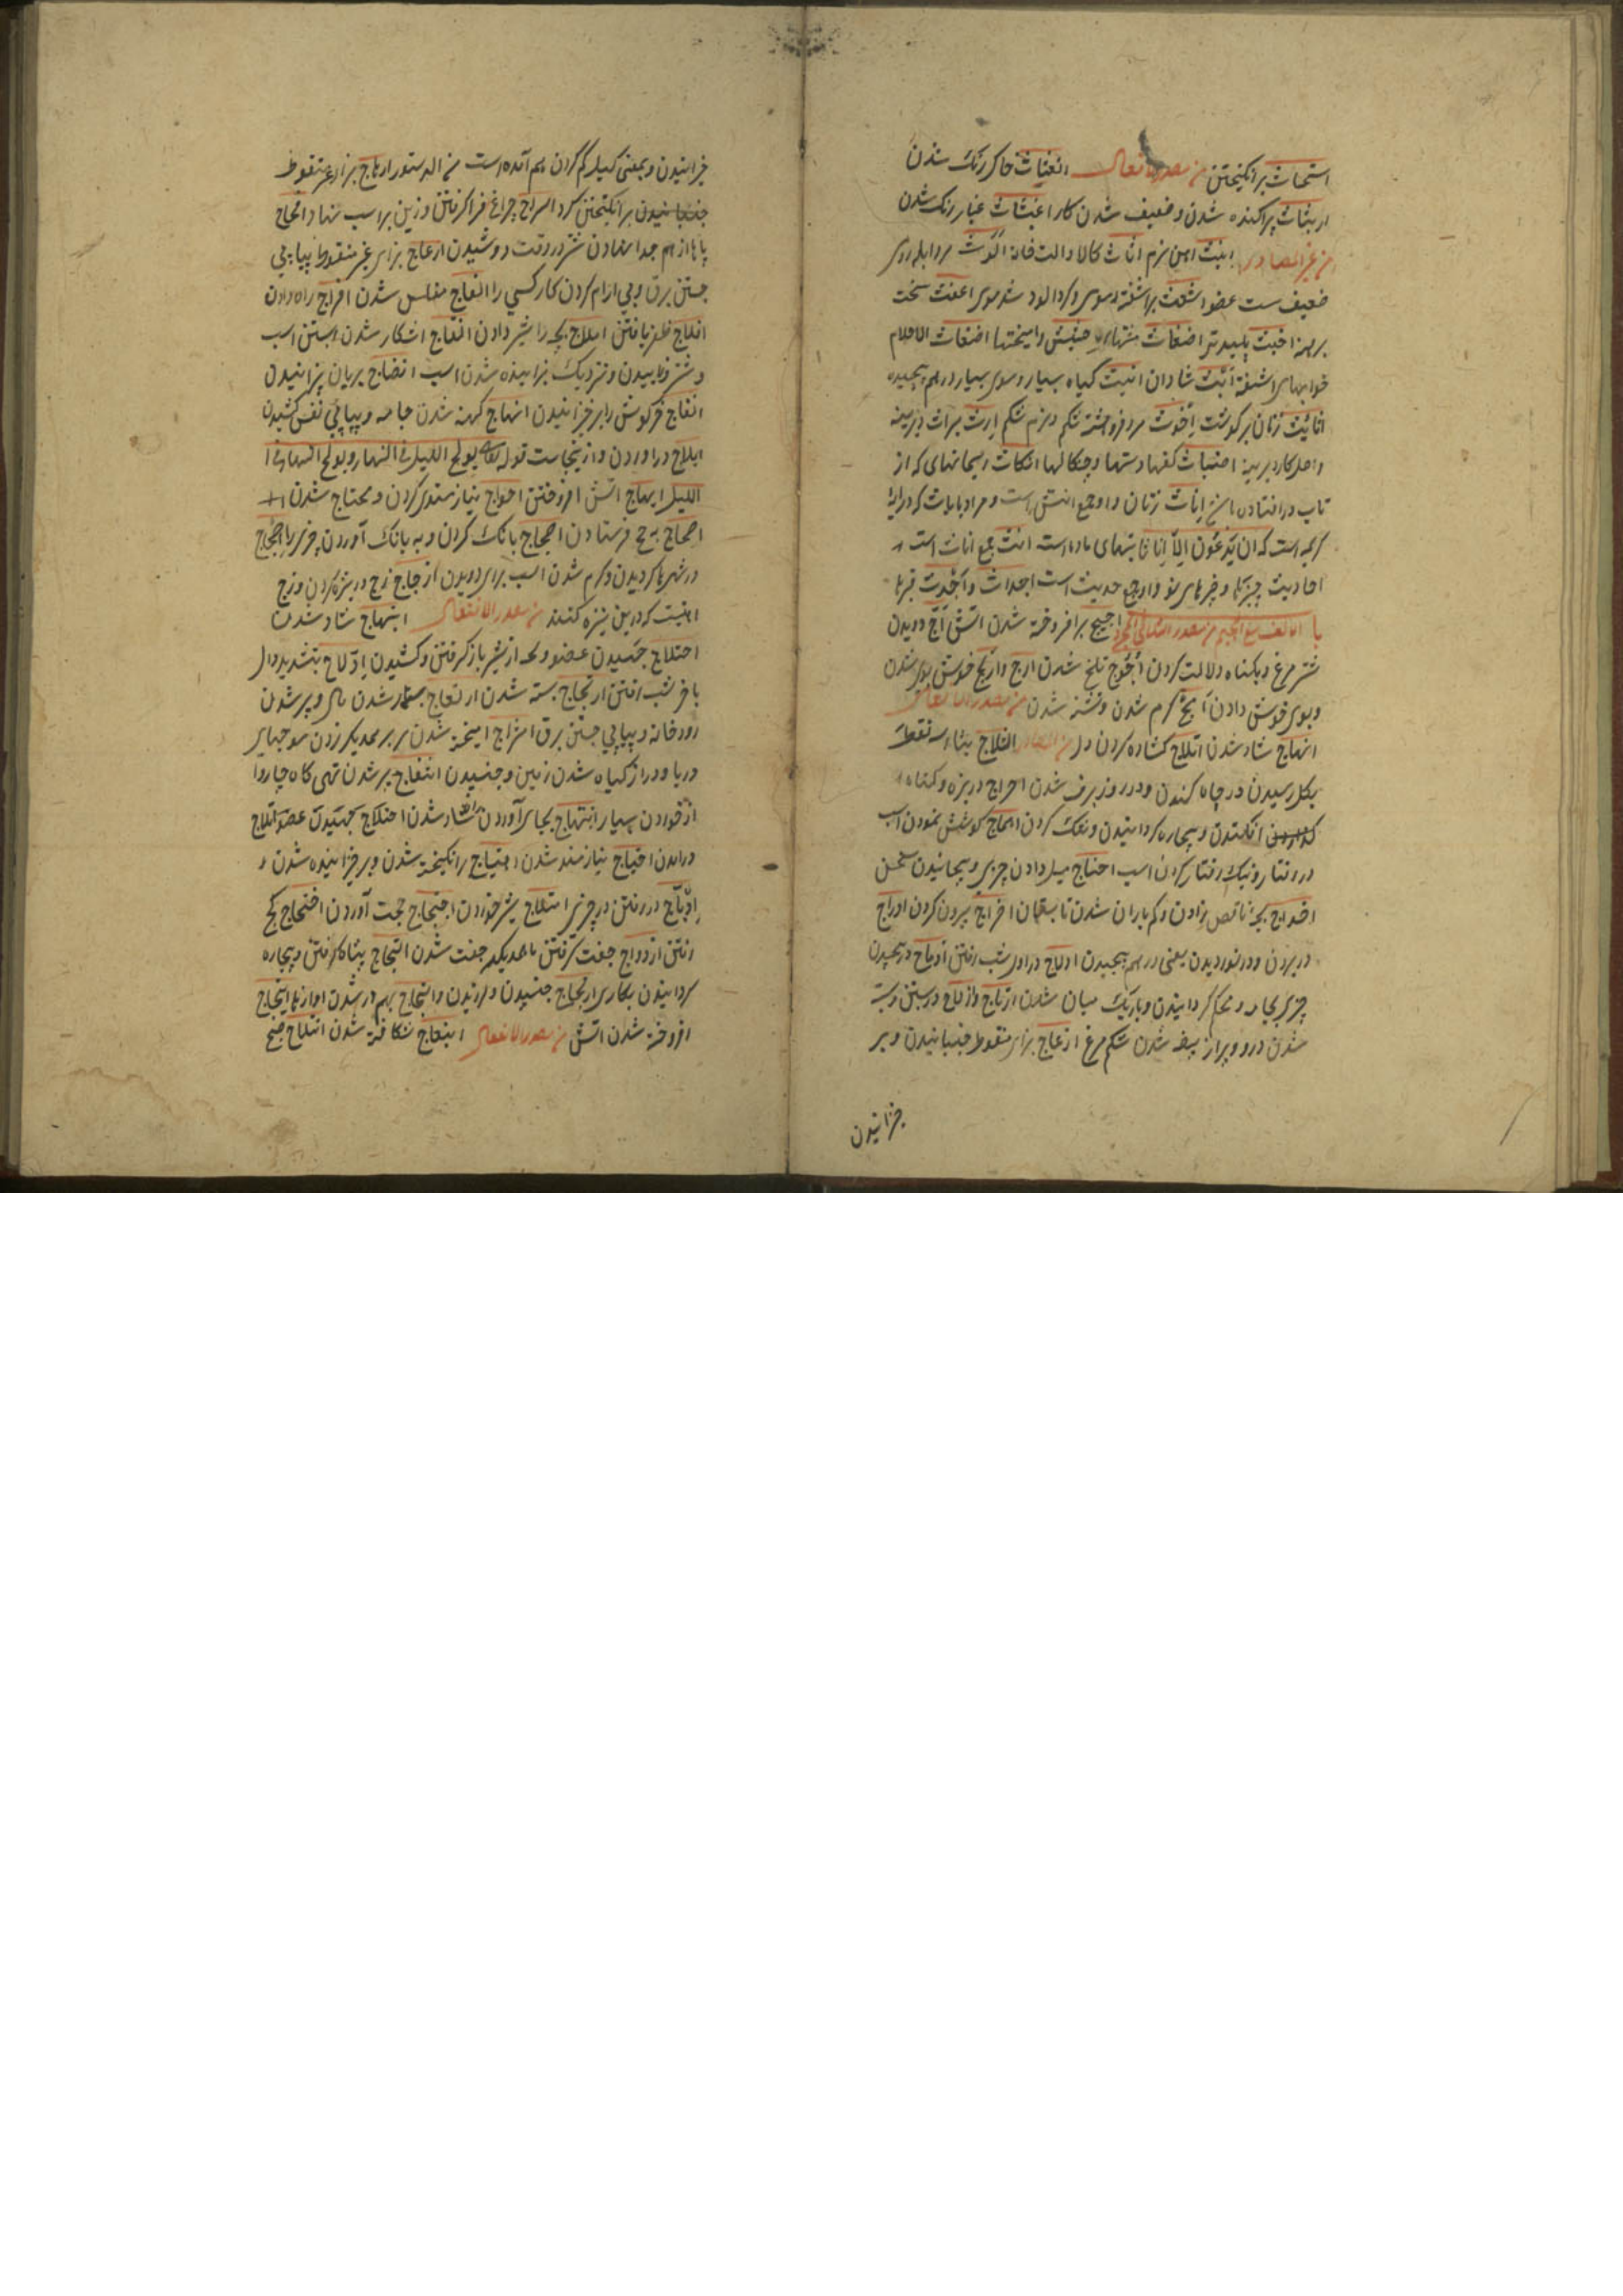 استحاث برانکیختن من مصدر الانفعال انغثاث خاکر رنک شدن
اربثاث پراکنده شدن و ضعیف شدن کار اغبثاث غبار رنک شدن
من غیر المصادر انیث اهن نرم اثاث کالا و الت خانه الوث مرد ابله روی
ضعیف سست عضو اشعث براشفته موی و کرد الود شدموی اعفث سخت
برهنه اخبث پلیدتر اضغاث مشتهای حشیش و امیختها اضغاث الاحلام
خوابهای اشفته اثیث شادان انیث کیاه بسیار و موی بسیار درهم پیچیده
اثائیث زنان پرکوشت اخوث مرد فروهشته شکم و نرم شکم ارث میراث دیرینه
و اصل کار دیرینه اضباث کفها و دستها و چنکالها انکاث ریسمانهای که از
تاب در افتاده باشد اناث زنان و او جمع انثی است و مراد با اناث که در ایه
کریمه است که ان یدعون الا اناثا بتهای ماده است انث جمع اناث است
احادیث چیزها و خبرهای نو و او جمع حدیث است اجداث و اجدث قبرها
باب الالف مع الجیم من مصدر الثلاثی المجرد اجیج برافروخته شدن اتش اج دویدن
شتر مرغ و بکناه دلالت کردن اجوج تلخ شدن ارج و اریج خوش بوی شدن
و بوی خوش دادن اج کرم شدن و تشنه شدن من مصدر الافعال
ابهاج شاد شدن اثلاج کشاده کردن دل اثلاج بثاء سه نقطه
بکل رسیدن در چاه کندن و در روز برف شدن احراج در بزه و کناه
افکندن و بیچاره کردانیدن و تنک کردن اهماج کوشش نمودن اسب
در رفتار و نیک رفتار کردن اسب احناج میل دادن چیزی و پیچانیدن سخن
اخداج بچه ناقص زادن و کم باران شدن تابستان اخراج بیرون کردن ادراج
در بردن و در نوردیدن یعنی در هم پیچیدن ادلاج در اول شب رفتن ادماج در پیچیدن
چیزی بجامه و محکم کردانیدن و باریک میان شدن ارتاج و ازلاج در بستن و بسته
شدن در و پر از بیضه شدن شکم مرغ ازعاج بزای منقوط جنبانیدن و بر
خیزانیدن
خیزانیدن و بمعنی کیل کم کردن هم آمده است ارهاج براء غیر منقوط
جنبانیدن برانکیختن کرد اسراج چراغ فرا کرفتن و زین بر اسب نهاد افحاج
پاها از هم جدا نهادن شتر در وقت دوشیدن ارعاج برای غیر منقوط پیاپی
جستن برق و بی ارام کردن کار کسی را افلاج مفلس شدن افراج راه دادن
افلاج ظفر یافتن املاج بچه را شیر دادن انتاج اشکار شدن ابستن اسب
و شتر و زاییدن و نزدیک بزاینده شدن اسب انضاج بریان پزانیدن
انفاج خرکوش را برخیزانیدن انهاج کهنه شدن جامه و پیاپی نفس کشیدن
ایلاج دراوردن و ازینجاست قوله تعالی یولج اللیل فی النهار و یولج النهار فی ا
اللیل ایهاج اتش افروختن احواج نیازمند کردن و محتاج شدن
احجاج به حج فرستادن اضجاج بانک کردن و به بانک آوردن چیزی را اضجاج
در شهرها کردیدن و کرم شدن اسب برای دویدن ازجاج زج در نیزه کردن و زج
اهنیست که در بن نیزه کنند من مصدر الافتعال ابتهاج شاد شدن
اختلاج جنبیدن عضو و بچه از شیر باز کرفتن و کشیدن ادلاج بتشدید دال
باخر شب رفتن ارتجاج بسته شدن ارتعاج بسیار شدن مال و پر شدن
رودخانه و پیاپی جستن برق امتزاج امیخته شدن بر یکدیکر زدن موجهای
دریا و دراز کیاه شدن زمین و جنبیدن انتفاج پر شدن تهی کاه چاروا
از خوردن بسیار انتهاج بجای آوردن راه شاد شدن اختلاج جهیدن عضو اتلاج
درامدن احتیاج نیازمند شدن اهتیاج برانکیخته شدن و برخیزانیده شدن و
ادماج در رفتن در چیزی امتلاج شیر خوردن احتجاج حجت آوردن افتجاج کج
رفتن ازدواج جفت کرفتن با یکدیکر جفت شدن التجاج پناه کرفتن و بیچاره
کردانیدن بکاری ارتجاج جنبیدن و لرزیدن و التجاج بهم در شدن اوازها ایتجاج
افروخته شدن اتش من مصدر الانفعال انبعاج شکافته شدن انبلاج صبح